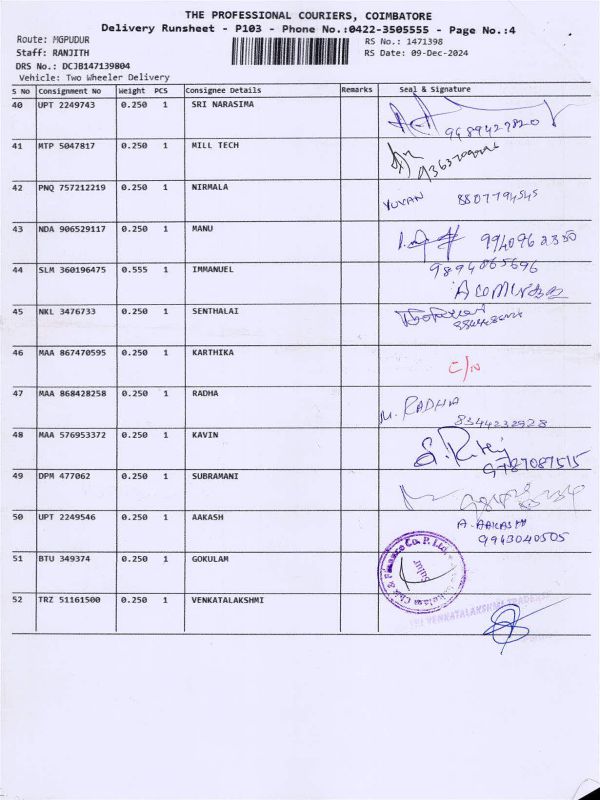 THE PROFESSIONAL COURIERS, COIMBATORE
Delivery Runsheet - P103 - Phone No.:0422-3505555 - Page No.:4
Route: MGPUDUR RS No.: 1471398
Staff: RANJITH RS Date: 09-Dec-2024
DRS No.: DCJB147139804
Vehicle: Two Wheeler Delivery
S No Consignment No Weight PCS Consignee Details Remarks Seal & Signature
40 UPT 2249743 0.250 1 SRI NARASIMA
9489429820
41 MTP 5047817 0.250 1 MILL TECH
42 PNQ 757212219 0.250 1 NIRMALA
YUVAN 8807794545
43 NDA 906529117 0.250 1 MANU
9940962380
44 SLM 360196475 0.555 1 IMMANUEL
9894065696
45 NKL 3476733 0.250 1 SENTHALAI
46 MAA 867470595 0.250 1 KARTHIKA
C/N
47 MAA 868428258 0.250 1 RADHA
M. RADHA
8344232928
48 MAA 576953372 0.250 1 KAVIN
9787087515
49 DPM 477062 0.250 1 SUBRAMANI
50 UPT 2249546 0.250 1 AAKASH
A. AAKASH
9943040505
51 BTU 349374 0.250 1 GOKULAM
Chit & Finance Co. P. Ltd.
Sulur
52 TRZ 51161500 0.250 1 VENKATALAKSHMI
SRI VENKATALAKSHMI TRADERS